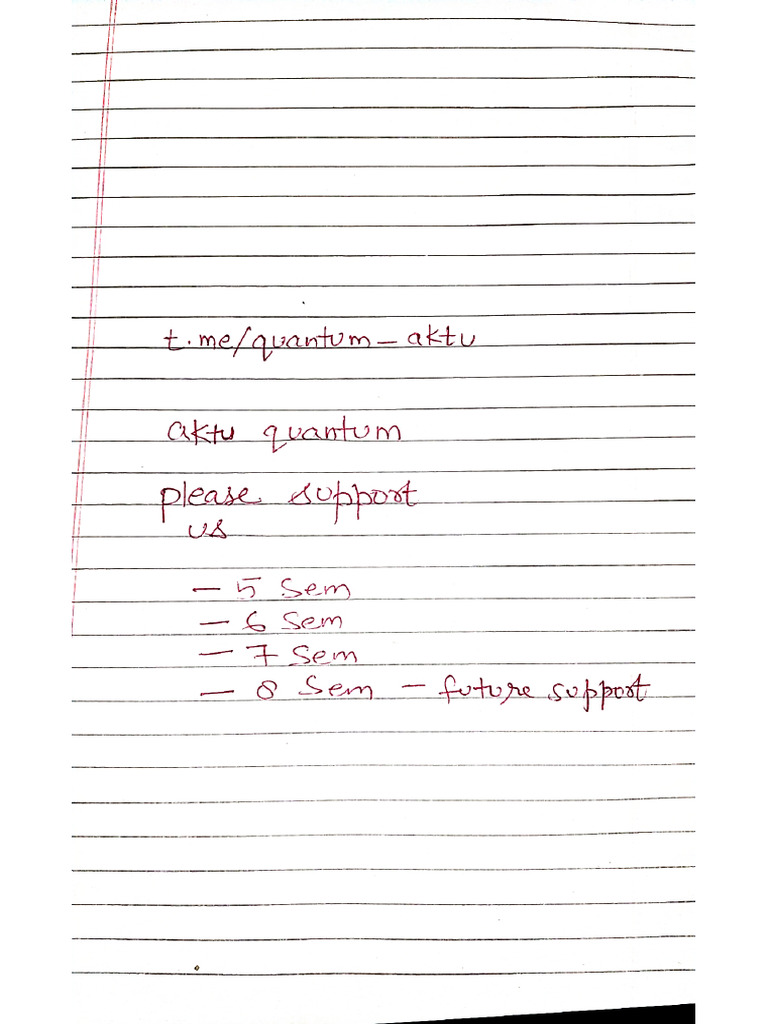 t.me/quantum_aktu
aktu quantum
please support
us
— 5 Sem
— 6 Sem
— 7 Sem
— 8 Sem — future support